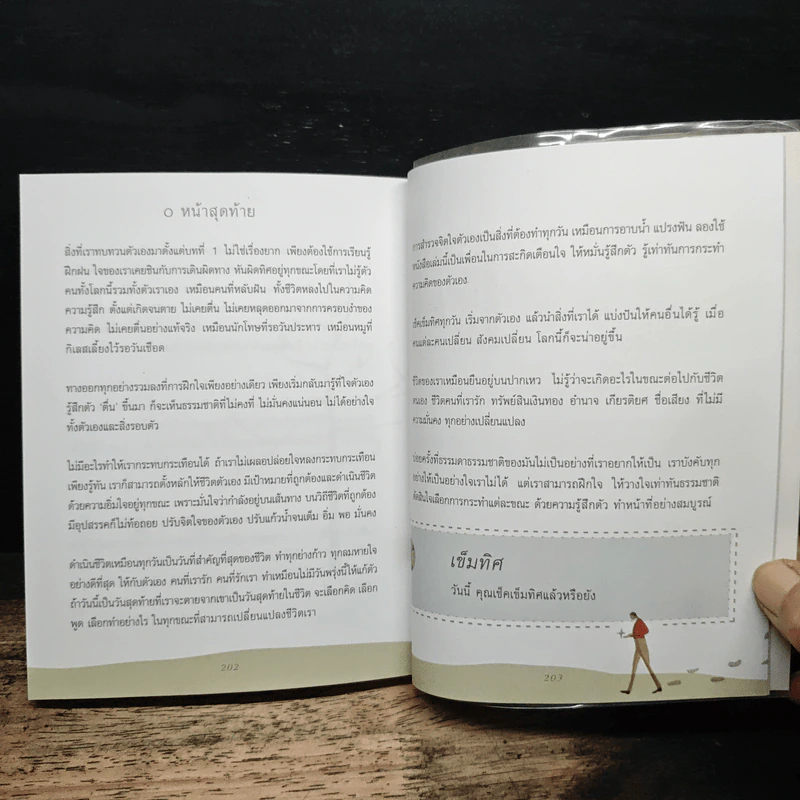 หน้าสุดท้าย
สิ่งที่เราทบทวนตัวเองมาตั้งแต่บทที่ 1 ไม่ใช่เรื่องยาก เพียงต้องใช้การเรียนรู้
ฝึกฝน ใจของเราเคยชินกับการเดินผิดทาง หันผิดทิศอยู่ทุกขณะโดยที่เราไม่รู้ตัว
คนทั้งโลกนี้รวมทั้งตัวเราเอง เหมือนคนที่หลับฝัน ทั้งชีวิตหลงไปในความคิด
ความรู้สึก ตั้งแต่เกิดจนตาย ไม่เคยตื่น ไม่เคยหลุดออกมาจากการครอบงำของ
ความคิด ไม่เคยตื่นอย่างแท้จริง เหมือนนักโทษที่รอวันประหาร เหมือนหมูที่
กิเลสเลี้ยงไว้รอวันเชือด
ทางออกทุกอย่างรวมลงที่การฝึกใจเพียงอย่างเดียว เพียงเริ่มกลับมารู้ที่ใจตัวเอง
รู้สึกตัว ‘ตื่น’ ขึ้นมา ก็จะเห็นธรรมชาติที่ไม่คงที่ ไม่มั่นคงแน่นอน ไม่ได้อย่างใจ
ทั้งตัวเองและสิ่งรอบตัว
ไม่มีอะไรทำให้เรากระทบกระเทือนได้ ถ้าเราไม่เผลอปล่อยใจหลงกระทบกระเทือน
เพียงรู้ทัน เราก็สามารถตั้งหลักให้ชีวิตตัวเอง มีเป้าหมายที่ถูกต้องและดำเนินชีวิต
ด้วยความอิ่มใจอยู่ทุกขณะ เพราะมั่นใจว่ากำลังอยู่บนเส้นทาง บนวิถีชีวิตที่ถูกต้อง
มีอุปสรรคก็ไม่ท้อถอย ปรับจิตใจของตัวเอง ปรับแก้วน้ำจนเต็ม อิ่ม พอ มั่นคง
ดำเนินชีวิตเหมือนทุกวันเป็นวันที่สำคัญที่สุดของชีวิต ทำทุกย่างก้าว ทุกลมหายใจ
อย่างดีที่สุด ให้กับตัวเอง คนที่เรารัก คนที่รักเรา ทำเหมือนไม่มีวันพรุ่งนี้ให้แก้ตัว
ถ้าวันนี้เป็นวันสุดท้ายที่เราจะตายจากเขาเป็นวันสุดท้ายในชีวิต จะเลือกคิด เลือก
พูด เลือกทำอย่างไร ในทุกขณะที่สามารถเปลี่ยนแปลงชีวิตเรา
202
การสำรวจจิตใจตัวเองเป็นสิ่งที่ต้องทำทุกวัน เหมือนการอาบน้ำ แปรงฟัน ลองใช้
หนังสือเล่มนี้เป็นเพื่อนในการสะกิดเตือนใจ ให้หมั่นรู้สึกตัว รู้เท่าทันการกระทำ
ความคิดของตัวเอง
เช็คเข็มทิศทุกวัน เริ่มจากตัวเอง แล้วนำสิ่งที่เราได้ แบ่งปันให้คนอื่นได้รู้ เมื่อ
คนแต่ละคนเปลี่ยน สังคมเปลี่ยน โลกนี้ก็จะน่าอยู่ขึ้น
ชีวิตของเราเหมือนยืนอยู่บนปากเหว ไม่รู้ว่าจะเกิดอะไรในขณะต่อไปกับชีวิต
ตนเอง ชีวิตคนที่เรารัก ทรัพย์สินเงินทอง อำนาจ เกียรติยศ ชื่อเสียง ที่ไม่มี
ความมั่นคง ทุกอย่างเปลี่ยนแปลง
บ่อยครั้งที่ธรรมดาธรรมชาติของมันไม่เป็นอย่างที่เราอยากให้เป็น เราบังคับทุก
อย่างให้เป็นอย่างใจเราไม่ได้ แต่เราสามารถฝึกใจ ให้วางใจเท่าทันธรรมชาติ
ตัดสินใจเลือกการกระทำแต่ละขณะ ด้วยความรู้สึกตัว ทำหน้าที่อย่างสมบูรณ์
เข็มทิศ
วันนี้ คุณเช็คเข็มทิศแล้วหรือยัง
203